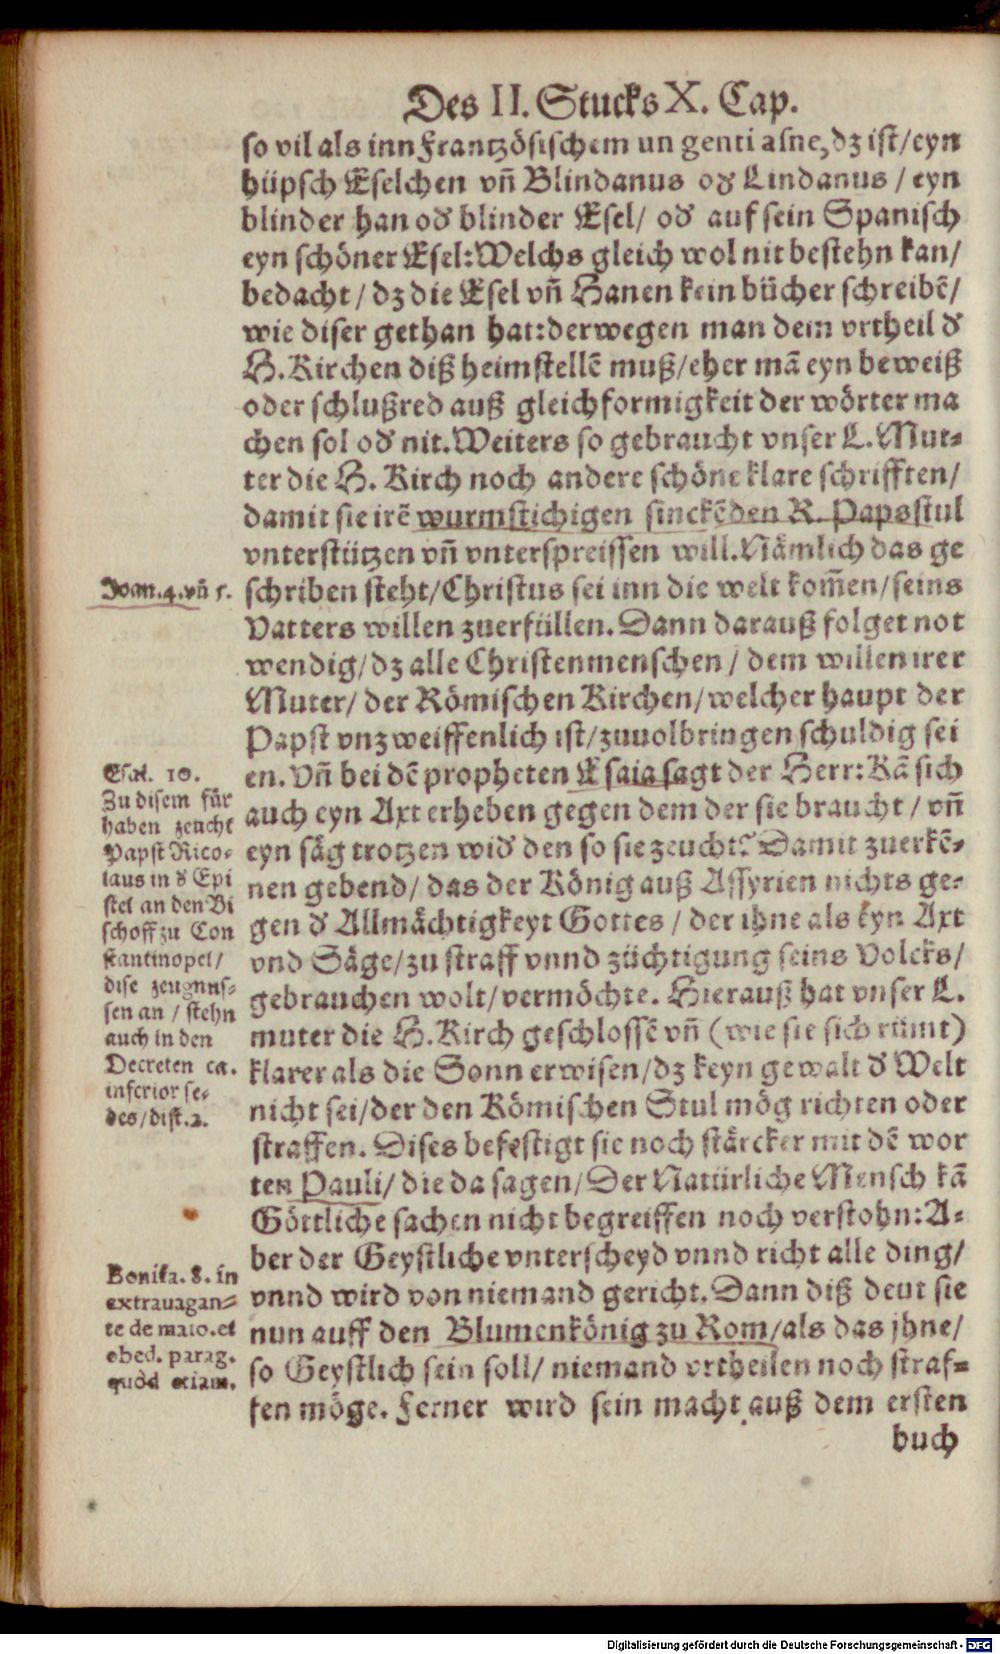 Des II. Stucks X. Cap.
so vil als inn Frantzösischem un genti asne, dz ist/eyn
hüpsch Eselchen vñ Blindanus oď Lindanus / eyn
blinder han oď blinder Esel/ oď auf sein Spanisch
eyn schöner Esel: Welchs gleich wol nit bestehn kan/
bedacht / dz die Esel vñ Hanen kein bücher schreibē/
wie diser gethan hat: derwegen man dem vrtheil ď
H. Kirchen diß heimstellē muß/eher mā eyn beweiß
oder schlußred auß gleichformigkeit der wörter ma
chen sol oď nit. Weiters so gebraucht vnser L. Mut-
ter die H. Kirch noch andere schöne klare schrifften/
damit sie irē wurmstichigen sinckēden R. Papsstul
vnterstützen vñ vnterspreissen will. Nämlich das ge
Joan. 4. vñ 5.
schriben steht/Christus sei inn die welt kom̃en/seins
Vatters willen zuerfüllen. Dann darauß folget not
wendig/dz alle Christenmenschen / dem willen irer
Muter/ der Römischen Kirchen/welcher haupt der
Papst vnzweiffenlich ist/zuuolbringen schuldig sei
en. Vñ bei dē propheten Esaia sagt der Herr: Kā sich
auch eyn Axt erheben gegen dem der sie braucht / vñ
eyn säg trotzen wiď den so sie zeucht? Damit zuerkē-
nen gebend/ das der König auß Assyrien nichts ge-
gen ď Allmächtigkeyt Gottes / der ihne als eyn Axt
vnd Säge/zu straff vnnd züchtigung seins Volcks/
gebrauchen wolt/vermöchte. Hierauß hat vnser L.
muter die H. Kirch geschlossē vñ (wie sie sich rümt)
klarer als die Sonn erwisen/dz keyn gewalt ď Welt
nicht sei/der den Römischen Stul mög richten oder
straffen. Dises befestigt sie noch stärcker mit dē wor
ten Pauli/ die da sagen/ Der Natürliche Mensch kā
Göttliche sachen nicht begreiffen noch verstohn: A-
ber der Geystliche vnterscheyd vnnd richt alle ding/
vnnd wird von niemand gericht. Dann diß deut sie
nun auff den Blumenkönig zu Rom/als das jhne/
so Geystlich sein soll/ niemand vrtheilen noch straf-
fen möge. Ferner wird sein macht auß dem ersten
buch
Esai. 10.
Zu disem für
haben zeucht
Papst Nico-
laus in ď Epi
stel an den Bi
schoff zu Con
stantinopel/
dise zeugnus-
sen an / stehn
auch in den
Decreten ca.
inferior se-
des/dist. 2.
Bonifa. 8. in
extrauagan-
te de maio. et
obed. parag.
quòd etiam.
Digitalisierung gefördert durch die Deutsche Forschungsgemeinschaft - DFG